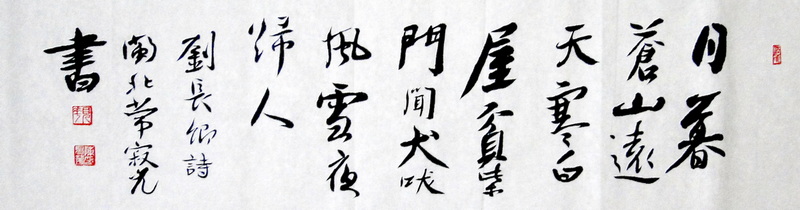 日暮
蒼山遠
天寒白
屋貧柴
門聞犬吠
風雪夜
歸人
劉長卿詩
閩北常寂光
書